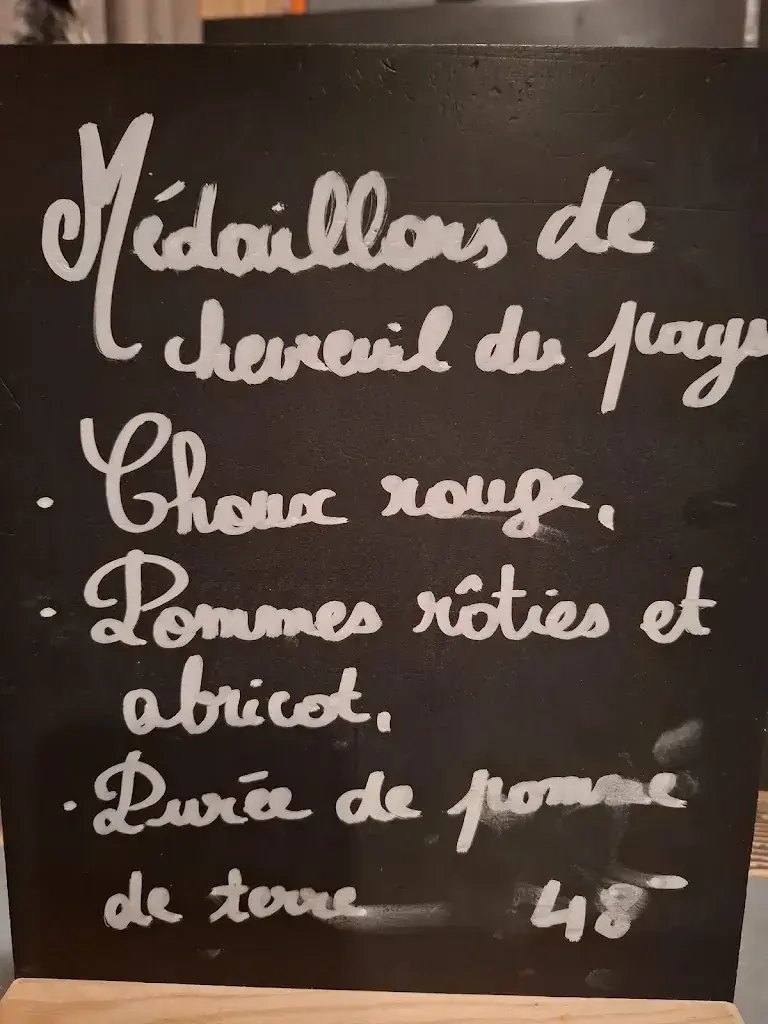 Médaillons de
chevreuil du pays
• Choux rouge.
• Pommes rôties et
abricot.
• Purée de pomme
de terre 48-